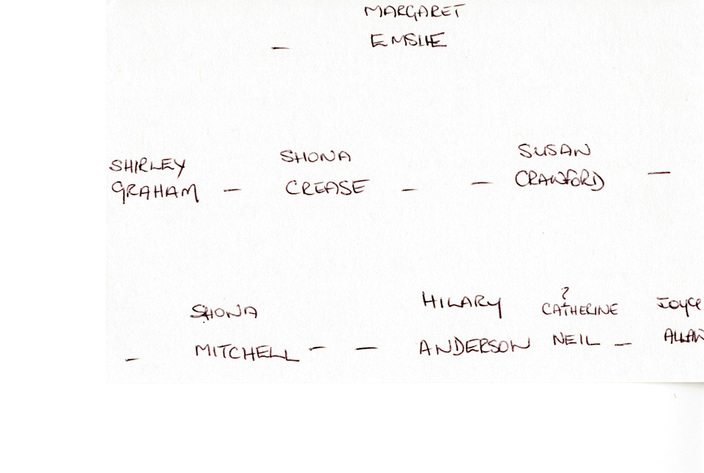 MARGARET
— EMSLIE
SHIRLEY SHONA SUSAN
GRAHAM — CREASE — — CRAWFORD —
?
SHONA HILARY CATHERINE JOYCE
— MITCHELL — — ANDERSON NEIL — ALLAN